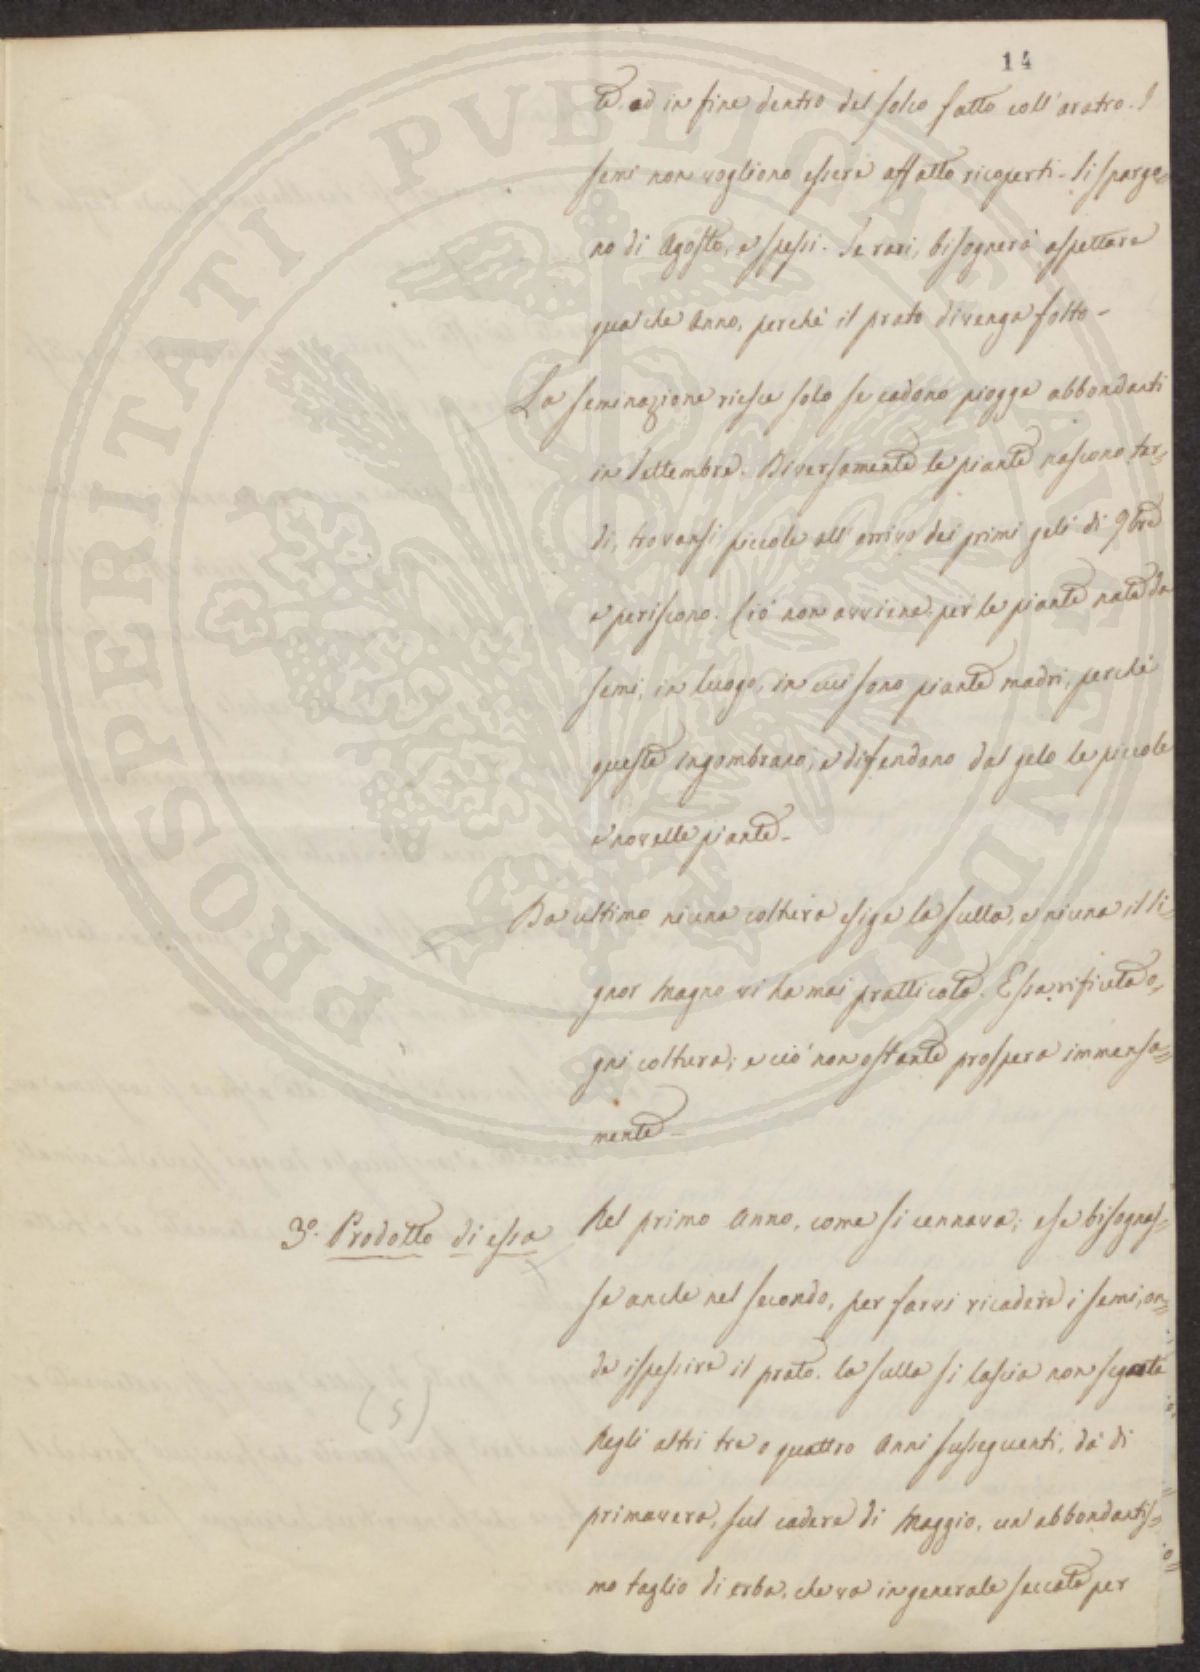 14
te, ed in fine dentro del solco fatto coll'aratro. I
semi non vogliono essere affatto ricoperti. Si sparga=
no di Agosto, e spessi. Se rari, bisognerà aspettare
qualche Anno, perchè il prato divenga folto -
La seminazione riesce solo se cadono piogge abbondanti
in Settembre. Diversamente le piante nascono tar=
di, trovansi piccole all'arrivo dei primi geli di 9bre
e periscono. Ciò non avviene per le piante nate da
semi, in luogo, in cui sono piante madri, perchè
queste ingombrano, e difendono dal gelo le piccole
e novelle piante -
Da ultimo niuna coltura esige la sulla, e niuna il Si=
gnor Magno vi ha mai pratticata. Essa rifiuta o=
gni coltura; e ciò non ostante prospera immensa=
mente -
3º. Prodotto di essa
Nel primo Anno, come si cennava; e se bisognas=
se anche nel secondo, per farvi ricadere i semi, on=
de ispessire il prato, la sulla si lascia non segata
Negli altri tre o quattro Anni susseguenti, dà di
primavera, sul cadere di Maggio, un'abbondantis=
mo taglio di erba, che va in generale seccata per
(5)
PROSPERITATI PUBLICAE AUGENDAE